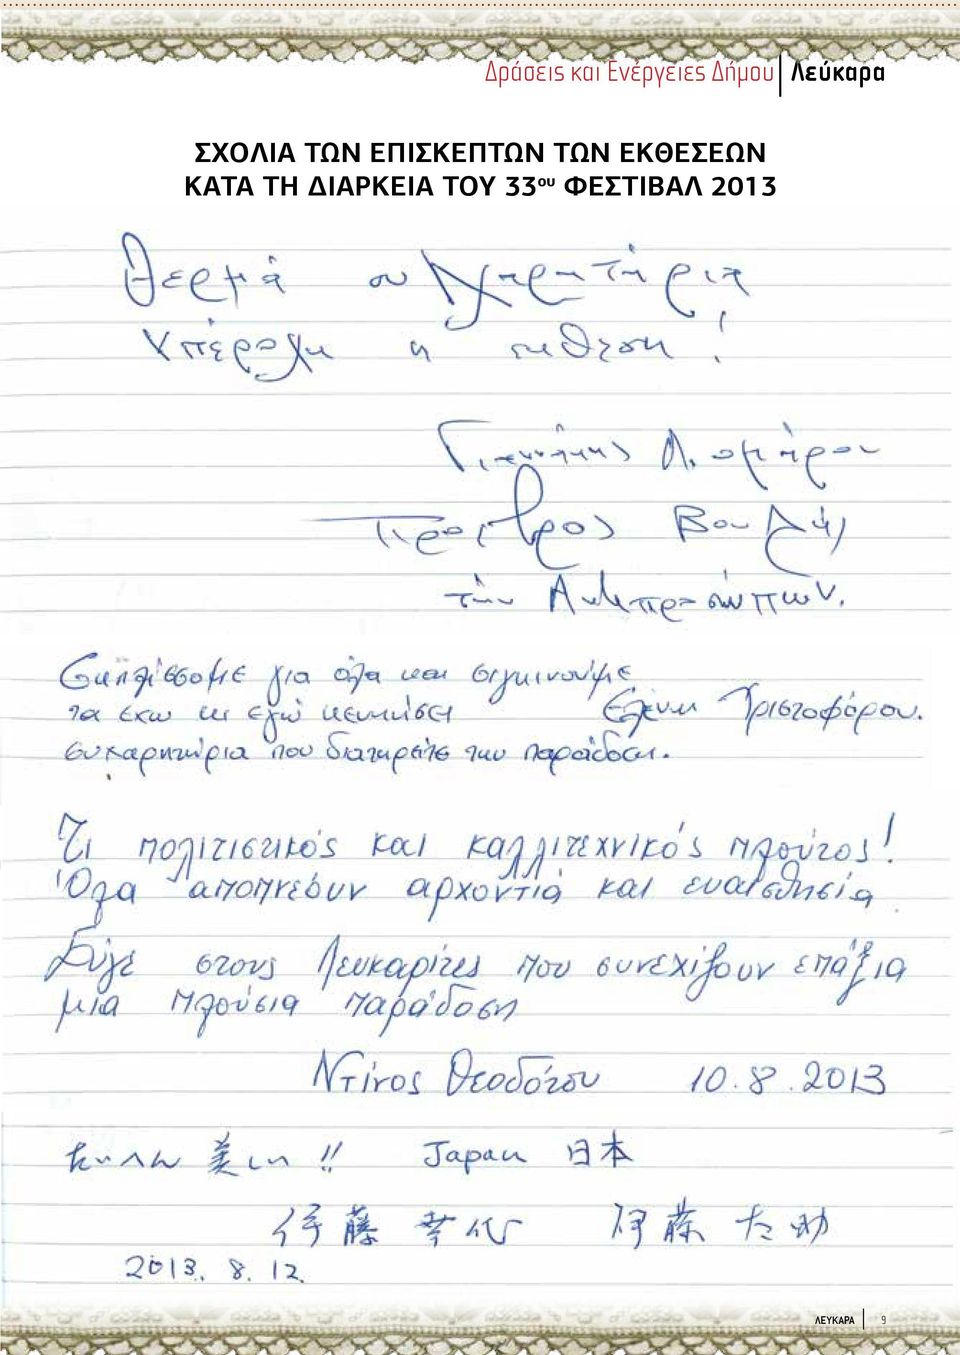 Δράσεις και Ενέργειες Δήμου Λεύκαρα
ΣΧΟΛΙΑ ΤΩΝ ΕΠΙΣΚΕΠΤΩΝ ΤΩΝ ΕΚΘΕΣΕΩΝ
ΚΑΤΑ ΤΗ ΔΙΑΡΚΕΙΑ ΤΟΥ 33ου ΦΕΣΤΙΒΑΛ 2013
Θερμά συγχαρητήρια
Υπέροχη η έκθεση!
Γιαννάκης Λ. Ομήρου
Πρόεδρος Βουλής
των Αντιπροσώπων.
για όλα και
τα έχω κι εγώ κεντήσει Ελένη Χριστοφόρου.
συχαρητήρια που διατηρείτε την παράδοση.
Τι πολιτιστικός και καλλιτεχνικός πλούτος!
Όλα αποπνέουν αρχοντιά και ευαισθησία
Εύγε στους Λευκαρίτες που συνεχίζουν επάξια
μια πλούσια παράδοση
Ντίνος Θεοδότου 10.8.2013
たいへん 美しい!! Japan 日本
伊藤 幸代 伊藤 大助
2013. 8. 12.
ΛΕΥΚΑΡΑ 9